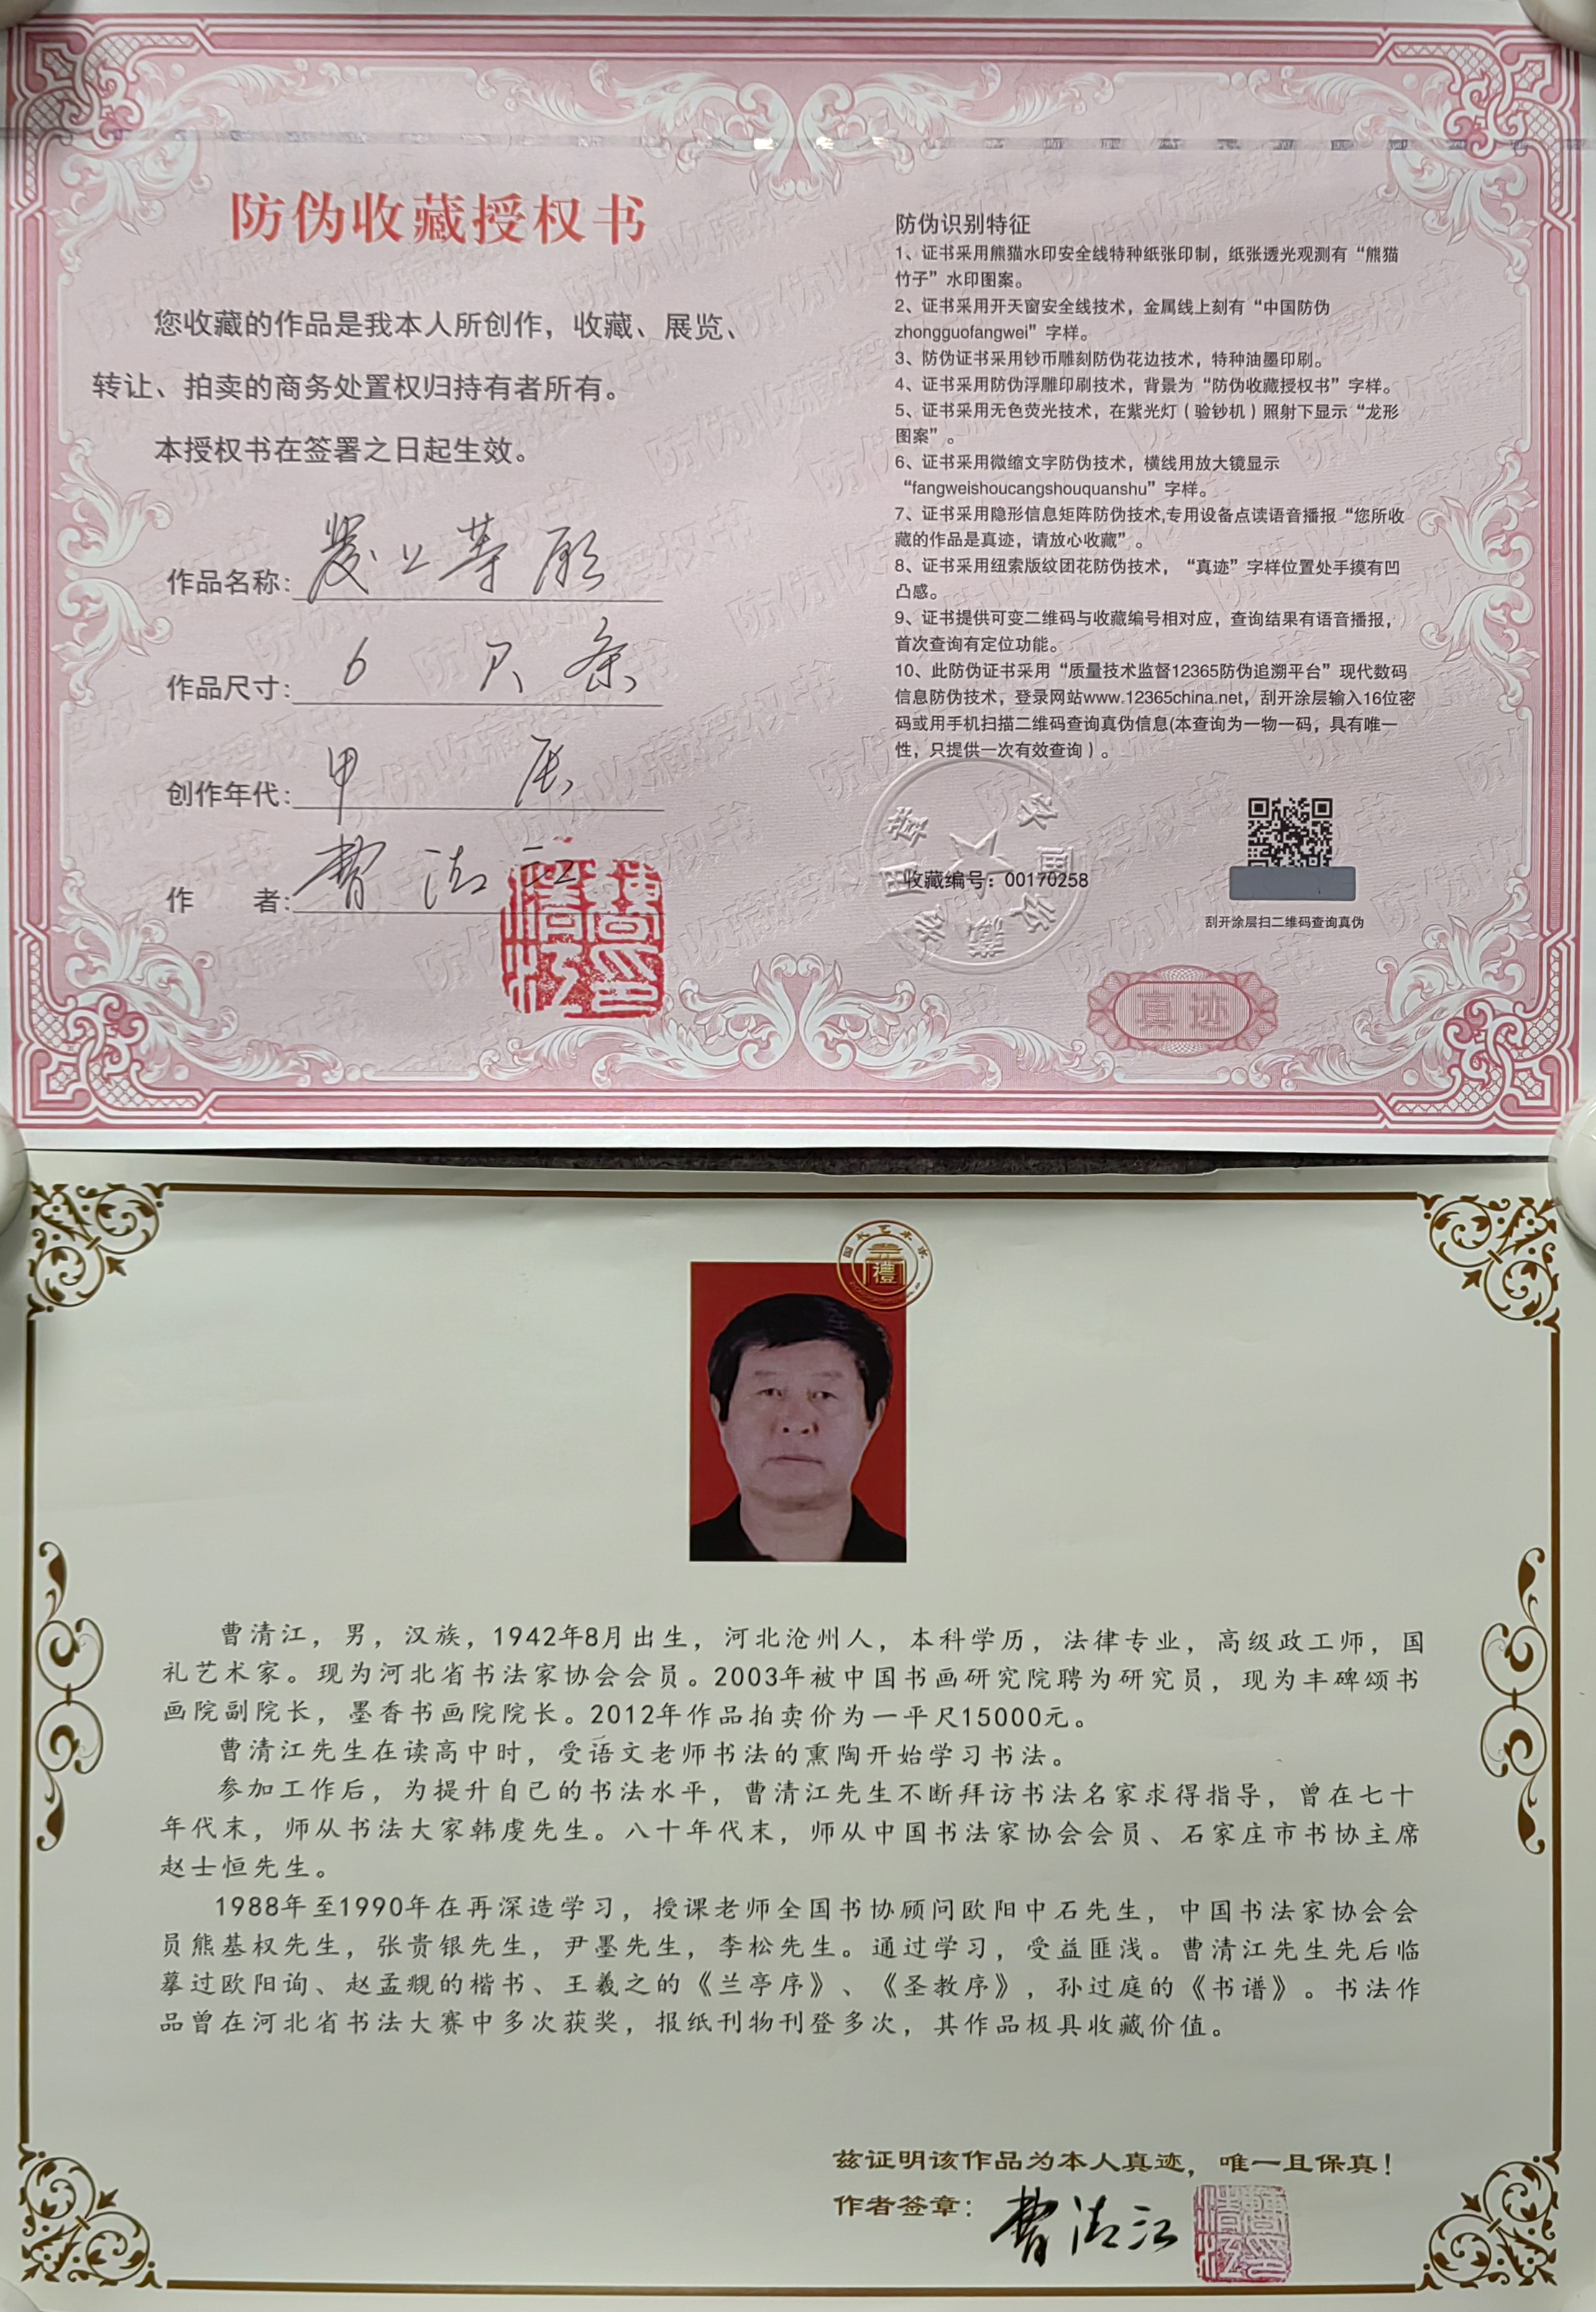 防伪收藏授权书
您收藏的作品是我本人所创作，收藏、展览、
转让、拍卖的商务处置权归持有者所有。
本授权书在签署之日起生效。
作品名称：
作品尺寸：6 尺条
创作年代：甲辰
作 者：曹清江
防伪识别特征
1、证书采用熊猫水印安全线特种纸张印制，纸张透光观测有“熊猫
竹子”水印图案。
2、证书采用开天窗安全线技术，金属线上刻有“中国防伪
zhongguofangwei”字样。
3、防伪证书采用钞币雕刻防伪花边技术，特种油墨印刷。
4、证书采用防伪浮雕印刷技术，背景为“防伪收藏授权书”字样。
5、证书采用无色荧光技术，在紫光灯（验钞机）照射下显示“龙形
图案”。
6、证书采用微缩文字防伪技术，横线用放大镜显示
“fangweishoucangshouquanshu”字样。
7、证书采用隐形信息矩阵防伪技术,专用设备点读语音播报“您所收
藏的作品是真迹，请放心收藏”。
8、证书采用纽索版纹团花防伪技术，“真迹”字样位置处手摸有凹
凸感。
9、证书提供可变二维码与收藏编号相对应，查询结果有语音播报，
首次查询有定位功能。
10、此防伪证书采用“质量技术监督12365防伪追溯平台”现代数码
信息防伪技术，登录网站www.12365china.net，刮开涂层输入16位密
码或用手机扫描二维码查询真伪信息(本查询为一物一码，具有唯一
性，只提供一次有效查询）。
收藏编号：00170258
刮开涂层扫二维码查询真伪
真迹
禮
曹清江，男，汉族，1942年8月出生，河北沧州人，本科学历，法律专业，高级政工师，国
礼艺术家。现为河北省书法家协会会员。2003年被中国书画研究院聘为研究员，现为丰碑颂书
画院副院长，墨香书画院院长。2012年作品拍卖价为一平尺15000元。
曹清江先生在读高中时，受语文老师书法的熏陶开始学习书法。
参加工作后，为提升自己的书法水平，曹清江先生不断拜访书法名家求得指导，曾在七十
年代末，师从书法大家韩虔先生。八十年代末，师从中国书法家协会会员、石家庄市书协主席
赵士恒先生。
1988年至1990年在再深造学习，授课老师全国书协顾问欧阳中石先生，中国书法家协会会
员熊基权先生，张贵银先生，尹墨先生，李松先生。通过学习，受益匪浅。曹清江先生先后临
摹过欧阳询、赵孟觊的楷书、王羲之的《兰亭序》、《圣教序》，孙过庭的《书谱》。书法作
品曾在河北省书法大赛中多次获奖，报纸刊物刊登多次，其作品极具收藏价值。
兹证明该作品为本人真迹，唯一且保真！
作者签章：曹清江